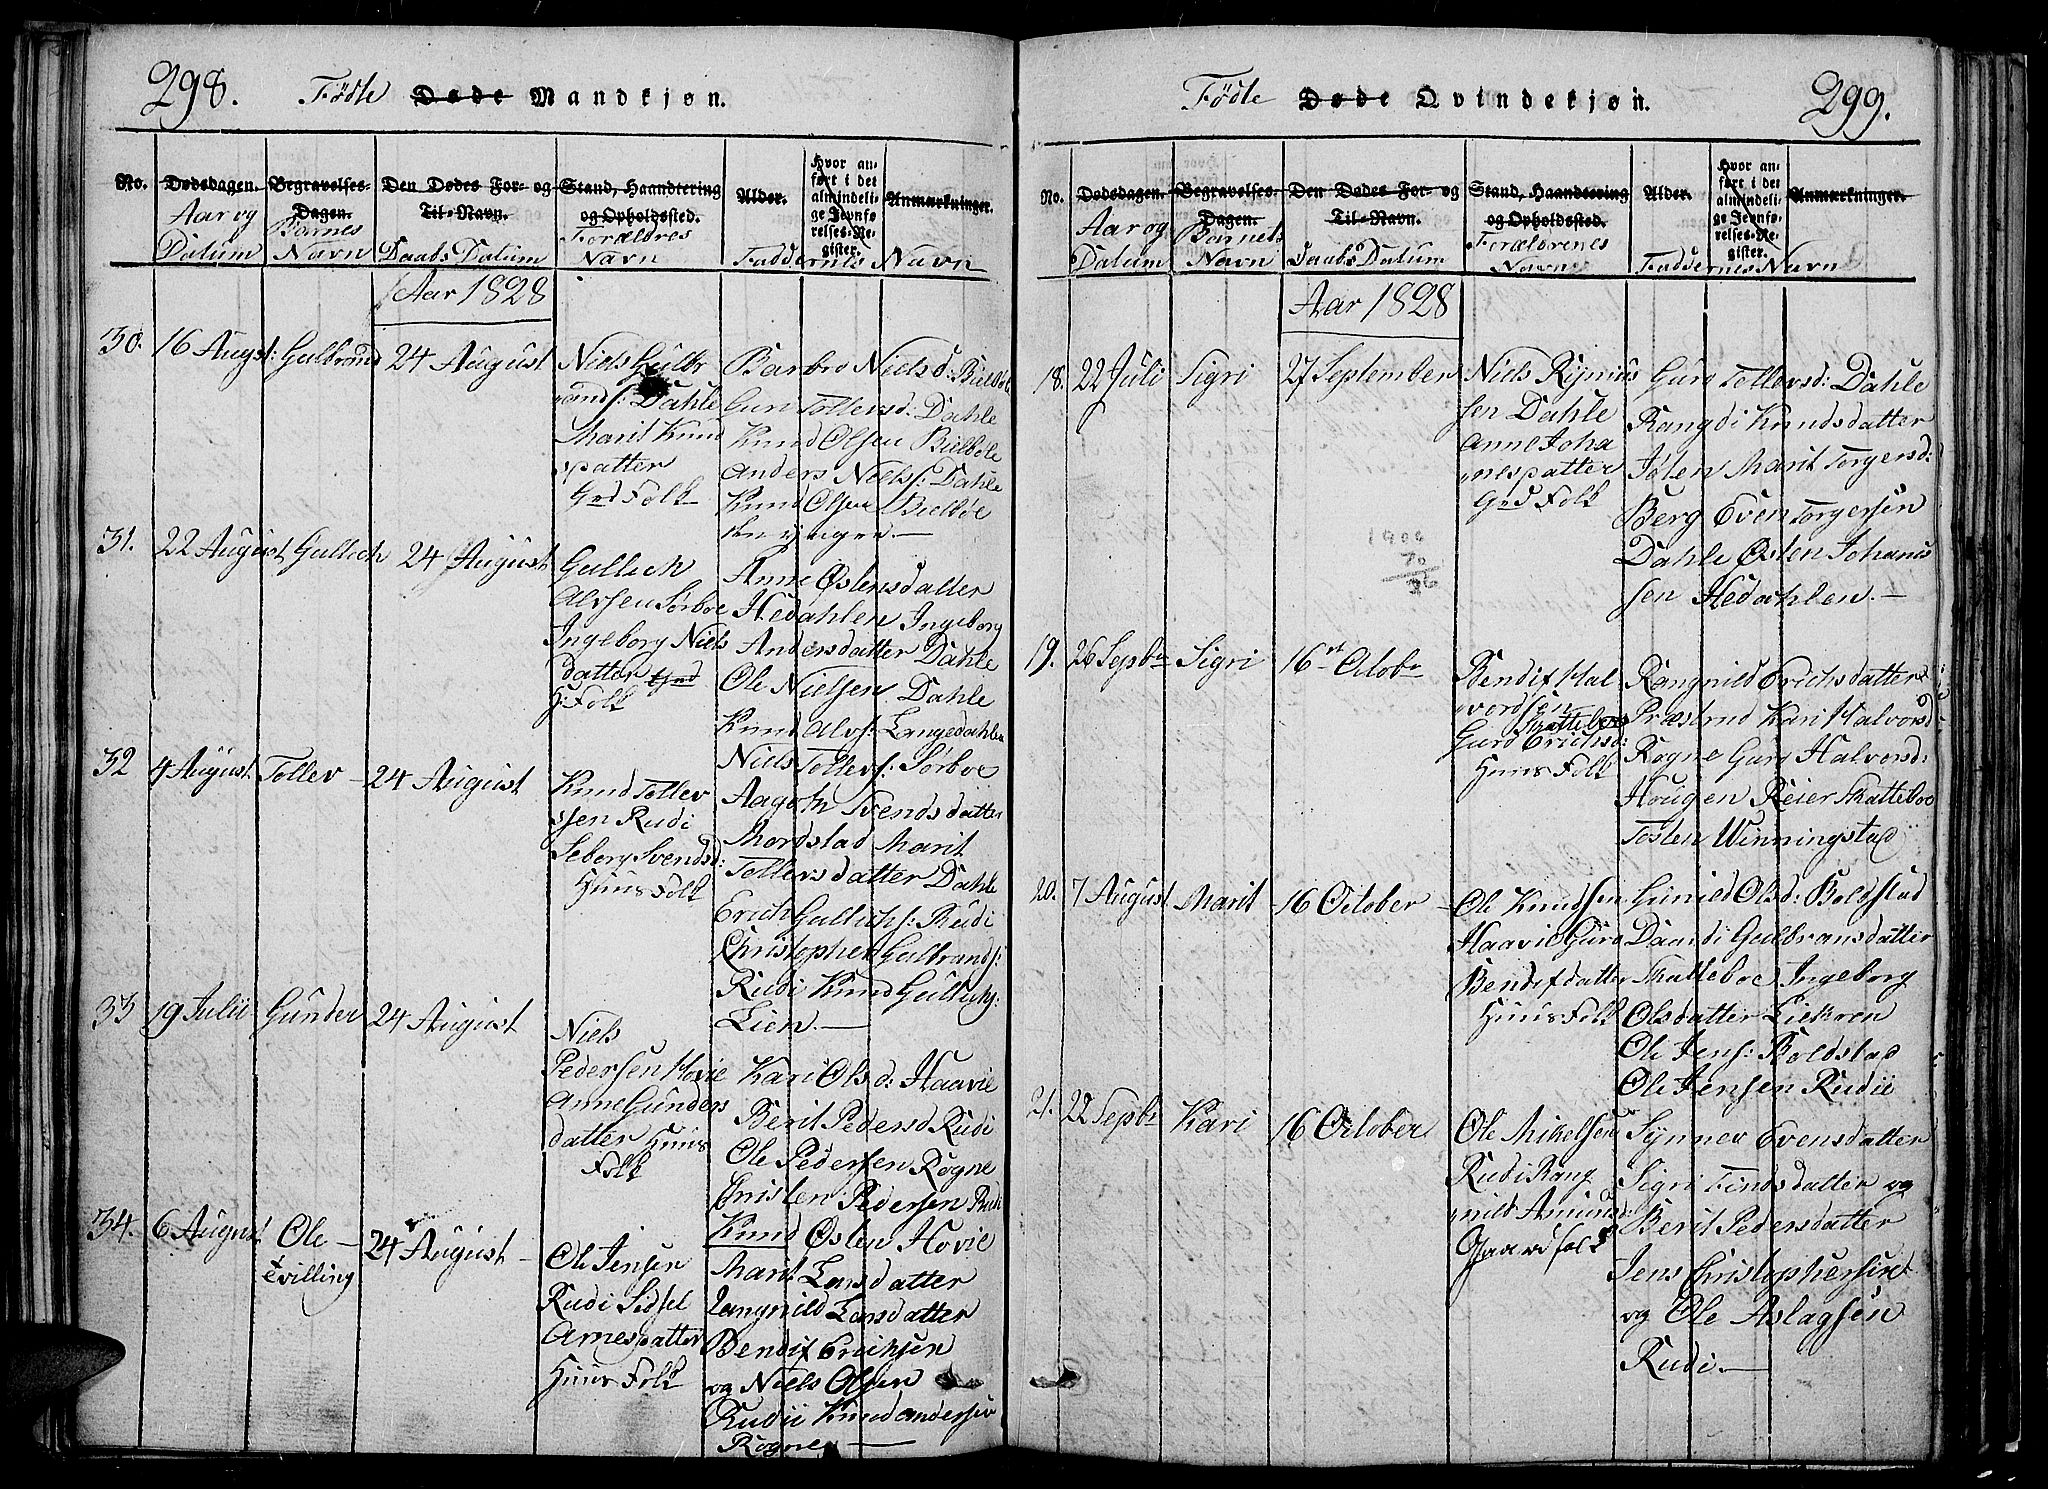 298.
Födte Døde Mandkjøn.
No.
Dødsdagen.
Aar og
Datum
Begravelses-
Dagen.
Barnes
Navn
Den Dødes For- og
Til-Navn.
Daabs Datum
Stand, Haandtering
og Opholdssted.
Forældres
Navn
Alder.
Hvor an-
ført i det
almindeli-
ge Jevnfø-
relses-Re-
gister.
Anmærkninger.
Faddernes Navn
Aar 1828
30. 16 Augst: Gulbrand 24 August
Niels Gulbr
ands: Dahle
Marit Knud
spatter
Grd Folk
Barbro Nielsd: Bielbøl
Guri Tollevsd: Dahle
Knud Olsen Bielbøle
Anders Niels: Dahle
Knud Olsen Bielbøe
den yngre.—
31. 22 August Gullich 24 August
Gullich
Alvsen Sørboe
Ingeborg Niels
datter Grd
H: Folk
Anne Østensdatter
Hedahlen Ingeborg
Andersdatter Dahle
Ole Nielsen Dahle
Knud Alvs: Langedahlen
Niels Tollevs: Sørboe
32 4 August Tollev – 24 August
Knud Tollev
sen Rudi
Seborg Svendsd:
Huus Folk
Aagoth Svendsdatter
Mordstad Marit
Tollevsdatter Dahle
Erich Gullichs: Rudi
Christopher Gulbrands:
Rudi Knud Gullichs:
Lien.—
33 19 Julii Gunder 24 August
Niels
Pedersen Hovie
Anne Gunders
datter Huus
Folk
Kari Olsd: Haavie
Berit Pedersd Rudi
Ole Pedersen Rogne
Christen Pedersen Rudi
Knud Østen Hovie
34. 6 August Ole – 24 August –
Tvilling
Ole Jensen
Rudi Sidsel
Arnespatter
Huus Folk
Marit Larsdatter
Rangnild Larsdatter
Bendix Erichsen
og Niels Olsen
Rudii Knud Andersen
Rogne —
299.
Födte Døde Qvindekjøn.
No.
Dødsdagen.
Aar og
Datum
Begravelses-
Dagen.
Barnets
Navn
Den Dødes For- og
Til-Navn.
Daabs Datum
Stand, Haandtering
og Opholdssted.
Forældrenes
Navn
Alder.
Hvor an-
ført i det
almindeli-
ge Jevnfø-
relses-Re-
gister.
Anmærkninger.
Faddernes Navn
Aar 1828
18. 22 Juli Sigri 27 September
Niels Rijmus
sen Dahle
Anne Joha
nespatter
Grd Folk
Guro Tollevsd: Dahle
Rangdi Knudsdatter
Jslen Marit Torgersd:
Berg Even Torgersen
Dahle Østen Johanis
sen Hedahlen.—
19. 26 Sepbr Sigri 16 Octobr
Bendix Hal
vordsen
Skattebøe
Guro Erichsd:
Huus Folk
Rangnild Erichsdatter
Præstrud Kari Halvorsd
Rogne Guro Halvorsd:
Hougen Reier Skatteboe
Tosten Winningstad
20. 7 August Marit 16 October –
Ole Knudsen
Haavie Guro
Bendixdatter
Huus Folk
Gunild Olsd: Boldstad
Daardi Gulbransdatter
Skatteboe Ingeborg
Olsdatter Liekren
Ole Jens: Boldstad
Ole Jensen Rudii
21. 22 Sepbr Kari 16 October
Ole Mikelsen
Rudi Rang
nild Amunds:
Gaardfolk
Synnev Evensdatter
Sigri Findsdatter og
Berit Pedersdatter
Jens Christophersen
og Ole Aslagsen
Rudi.—